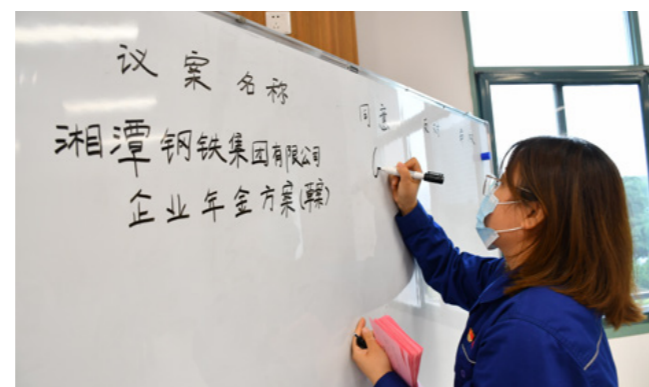 议案名称 同意
湘潭钢铁集团有限公司
企业年金方案(草案)